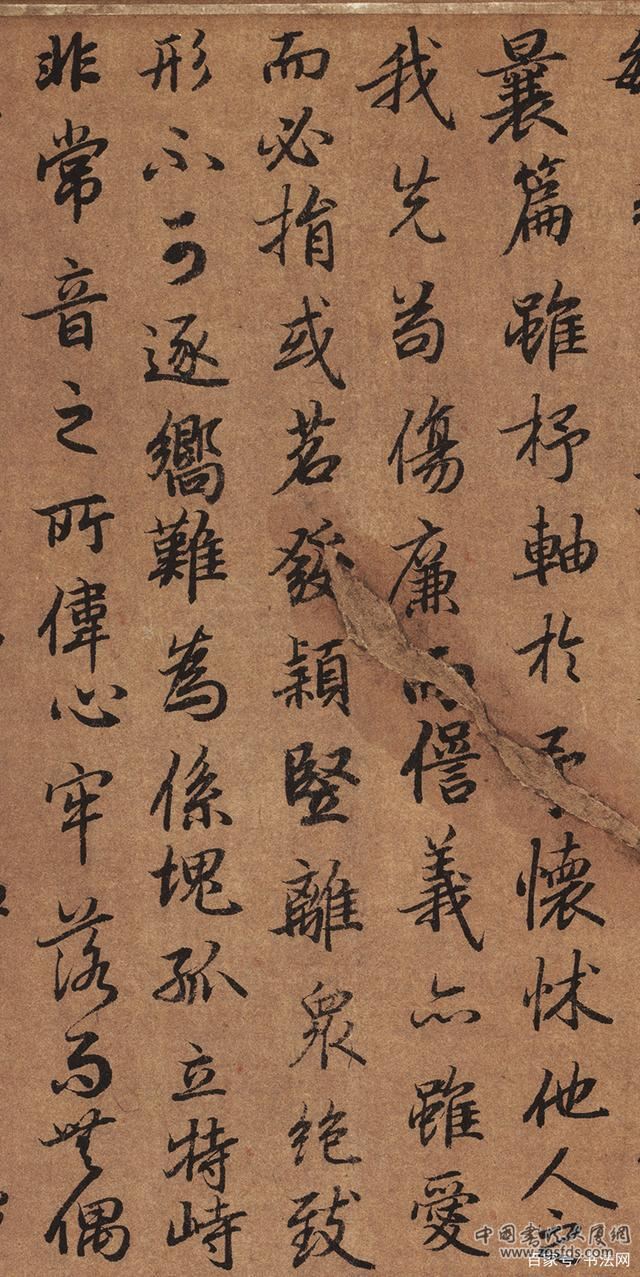 曩篇雖杼軸於予懷怵他人之
我先苟傷廉而僁義亦雖愛
而必捐或苕發穎豎離眾絕致
形不可逐嚮難為係塊孤立特峙
非常音之所偉心牢落而無偶
www.zgsfds.com
百家号/书法网